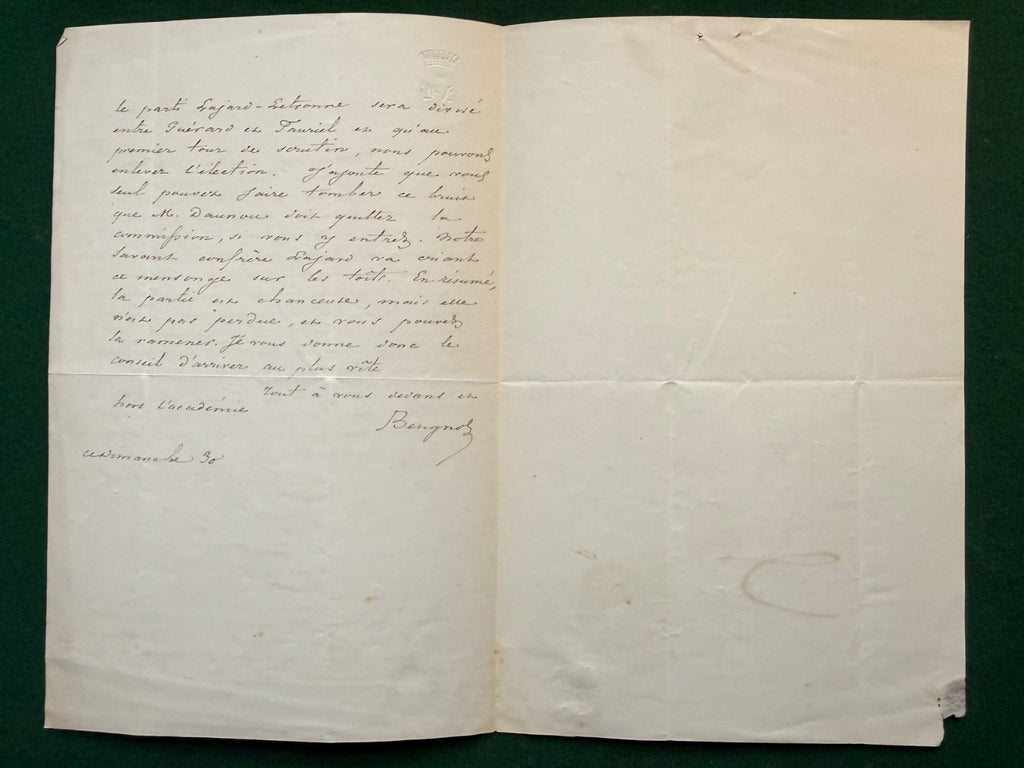 le parti Lajard-Letronne sera divisé
entre Guérard et Fauriel et qu'au
premier tour de scrutin, nous pouvons
enlever l'élection. J'ajoute que vous
seul pouvez faire tomber ce bruit
que M. Daunou doit quitter la
commission, si vous y entrez. Notre
savant confrère Lajard va criant
ce mensonge sur les toîts. En résumé,
la partie est chanceuse, mais elle
n'est pas perdue, et vous pouvez
la ramener. Je vous donne donc le
conseil d'arriver au plus vîte
Tout à vous dedans et
hors l'académie
Beugnot
ce Dimanche 30